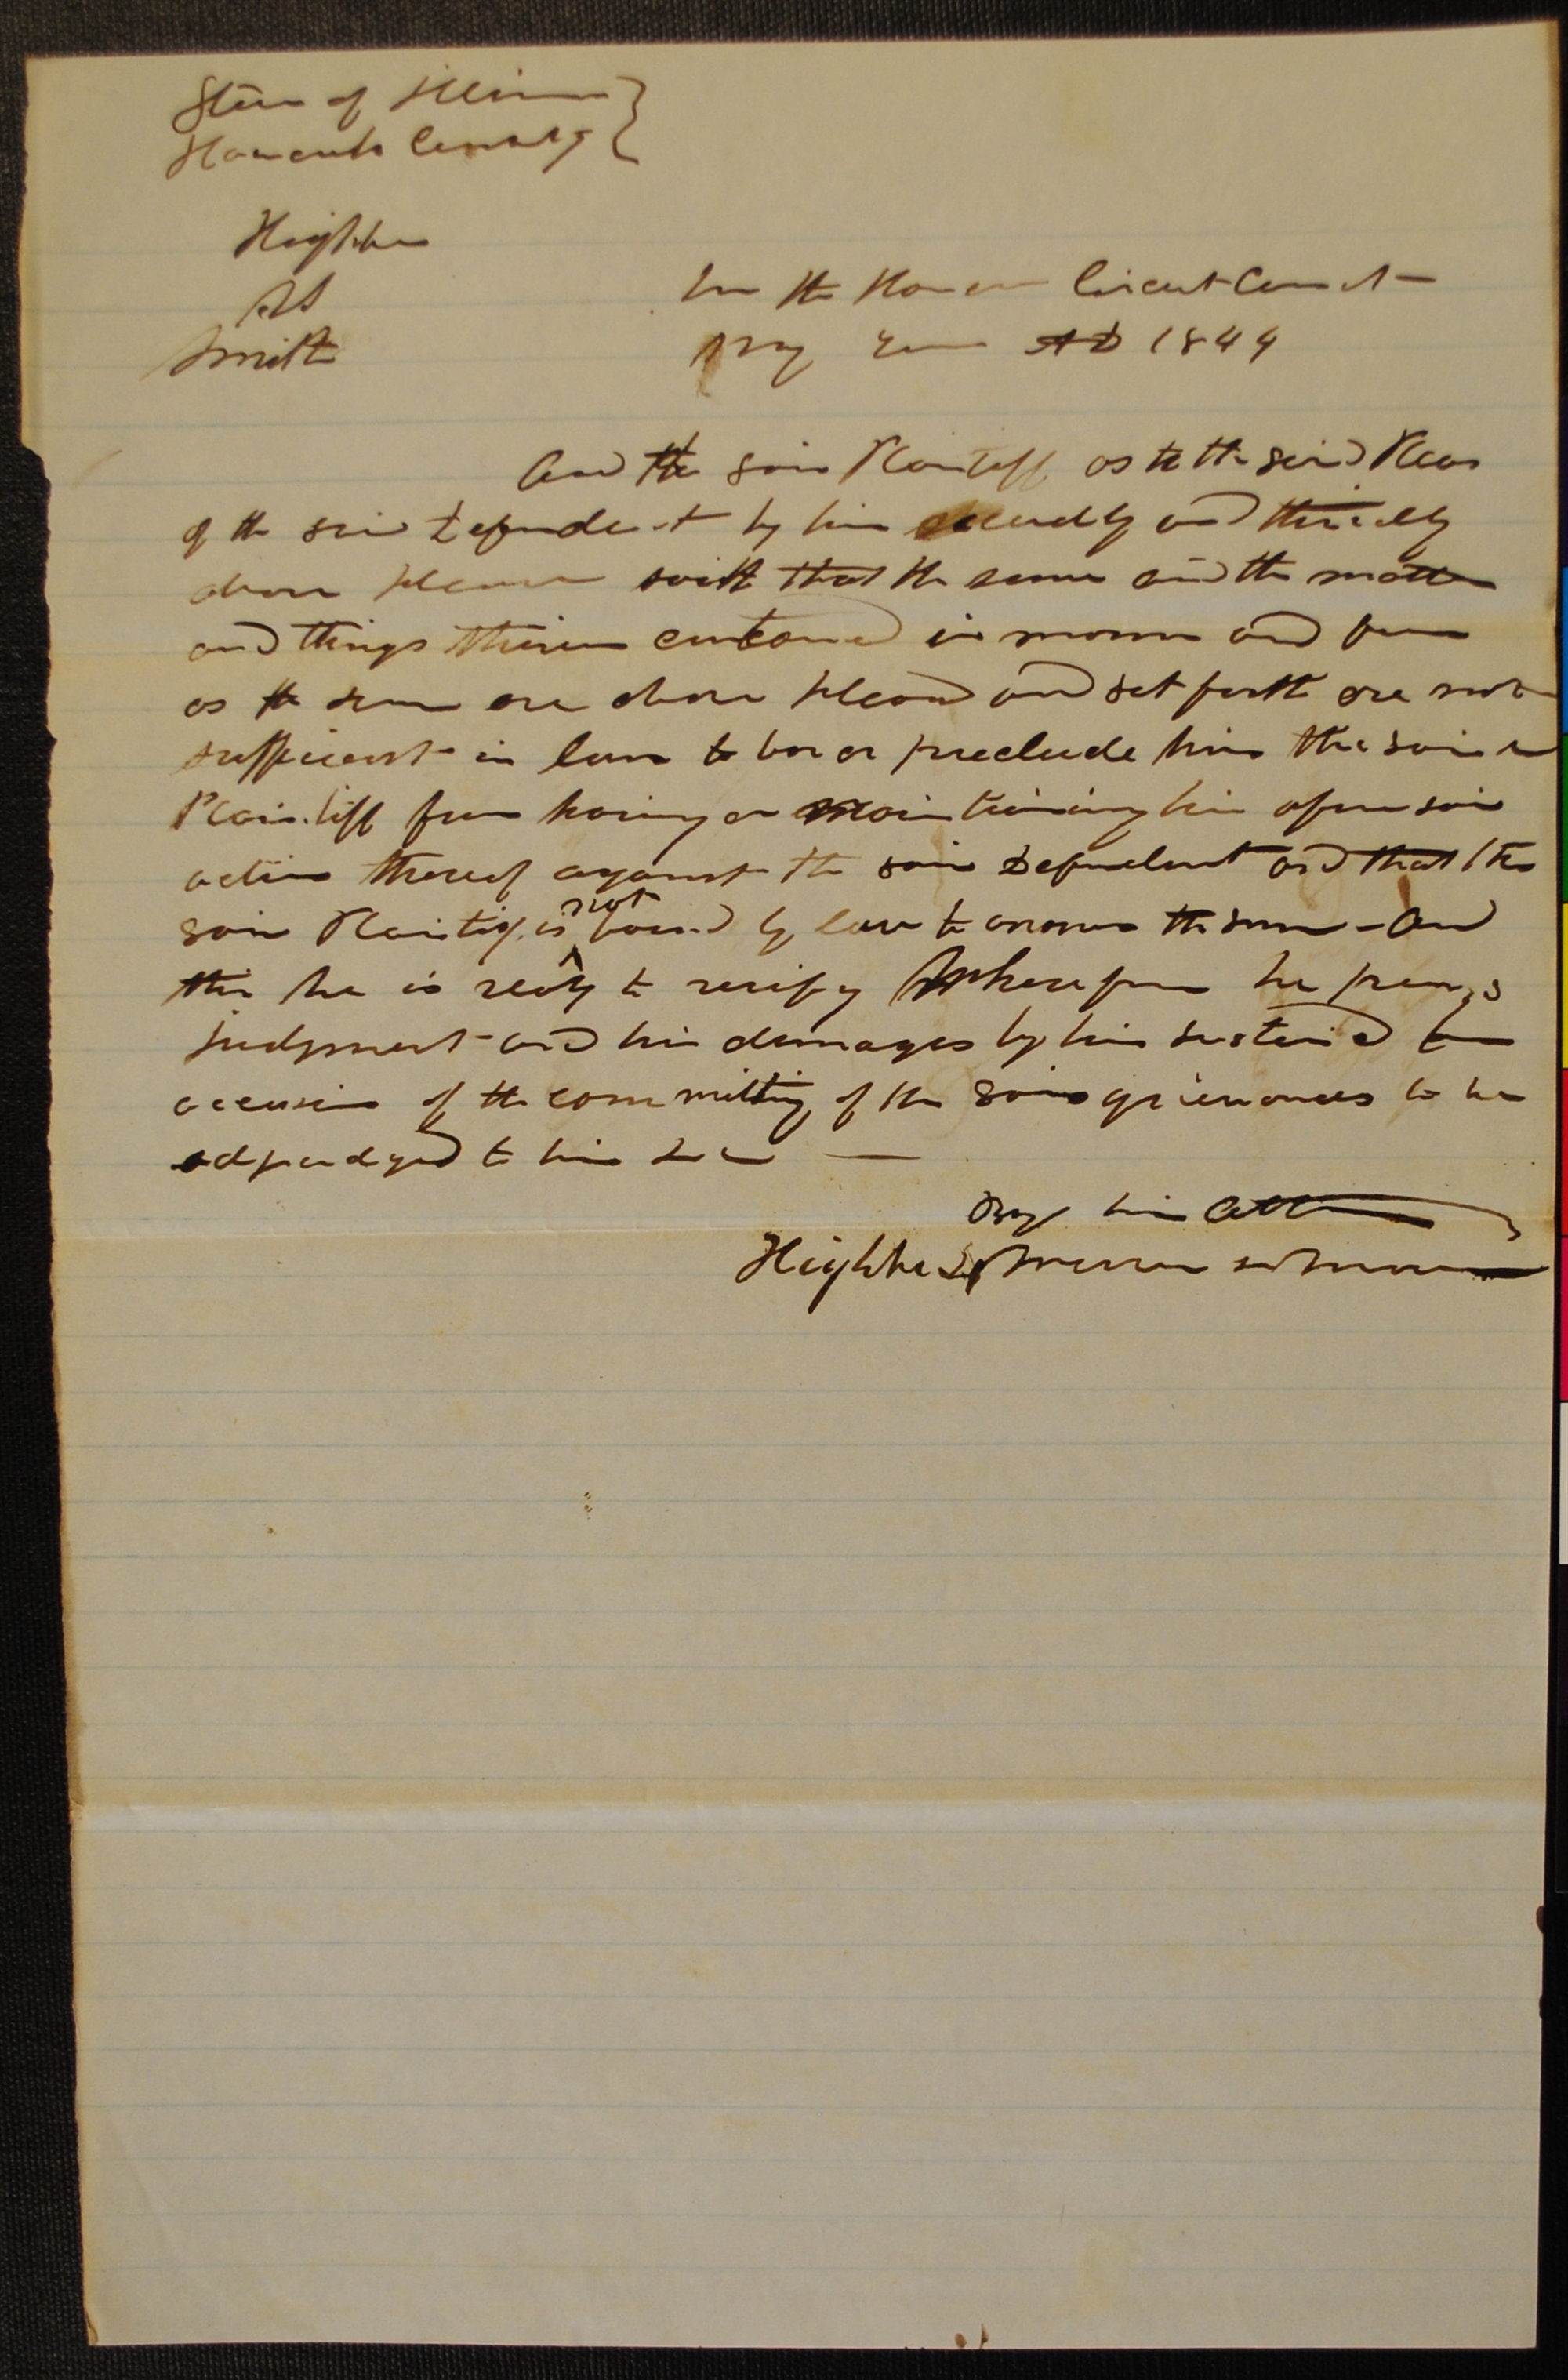 State of Illinois }
Hancock County }
Higbee
vs
Smith
In the Hancock Circuit Court
May Term AD 1844
And the said Plaintiff as to the said Pleas
of the said Defendant by him secondly and thirdly
above pleaded saith that the same and the matters
and things therein contained in manner and form
as the same are above pleaded and set forth are not
sufficient in law to bar or preclude him the said
Plaintiff from having or maintaining his aforesaid
action thereof against the said Defendant and that the
said Plaintiff is not bound by law to answer the same - And
this he is ready to verify Wherefore he prays
judgment and his damages by him sustained
occasion of the committing of the said grievances to be
adjudged to him &c —
By his Atty
Higbee